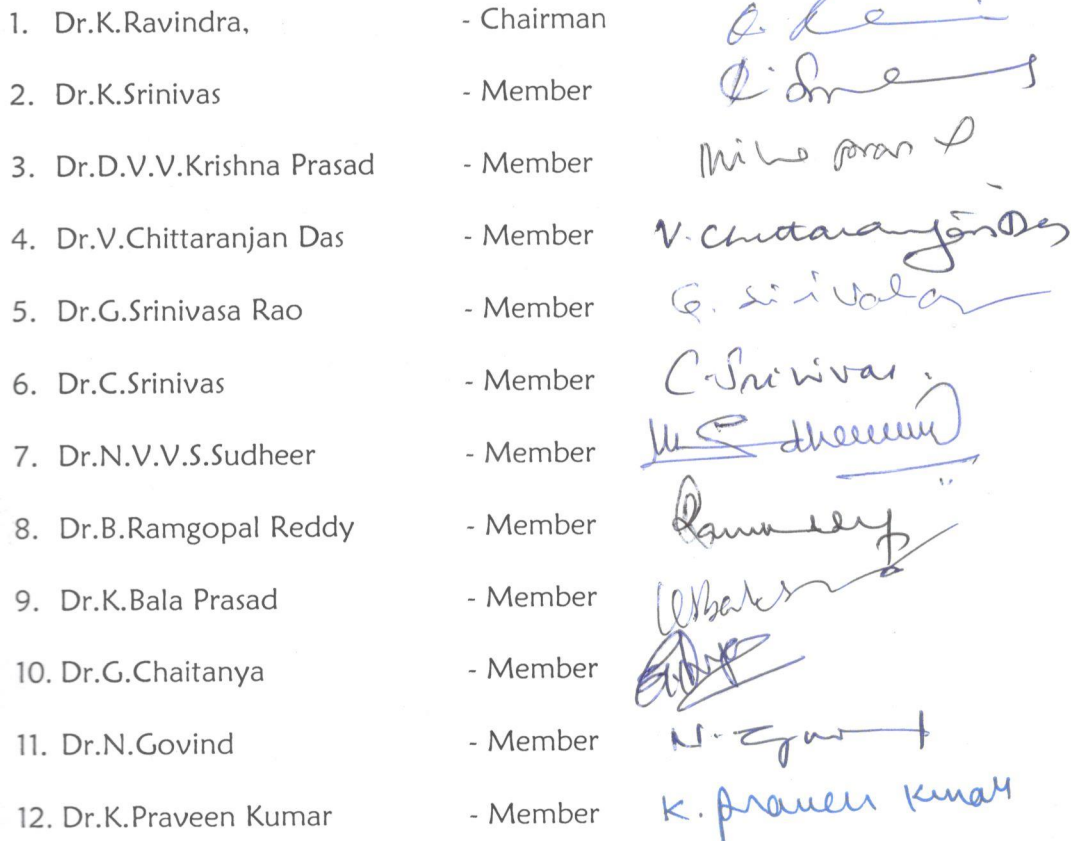 1. Dr.K.Ravindra, - Chairman
2. Dr.K.Srinivas - Member
3. Dr.D.V.V.Krishna Prasad - Member
4. Dr.V.Chittaranjan Das - Member V. Chittaranjan Das
5. Dr.G.Srinivasa Rao - Member
6. Dr.C.Srinivas - Member C. Srinivas.
7. Dr.N.V.V.S.Sudheer - Member
8. Dr.B.Ramgopal Reddy - Member
9. Dr.K.Bala Prasad - Member
10. Dr.G.Chaitanya - Member
11. Dr.N.Govind - Member
12. Dr.K.Praveen Kumar - Member K. Praveen Kumar